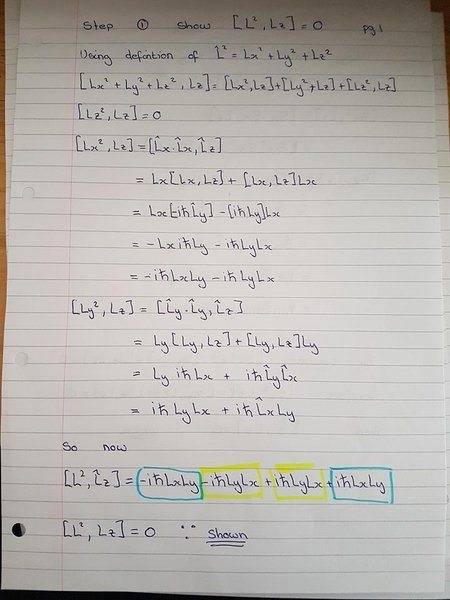 Step ① Show [L², Lz] = 0 pg 1
Using defintion of L̂² = Lx² + Ly² + Lz²
[Lx² + Ly² + Lz², Lz] = [Lx², Lz] + [Ly², Lz] + [Lz², Lz]
[Lz², Lz] = 0
[Lx², Lz] = [L̂x·L̂x, L̂z]
= Lx[Lx, Lz] + [Lx, Lz]Lx
= Lx[-iħL̂y] - [iħLy]Lx
= -LxiħLy - iħLyLx
= -iħLxLy - iħLyLx
[Ly², Lz] = [L̂y·L̂y, L̂z]
= Ly[Ly, Lz] + [Ly, Lz]Ly
= Ly iħLx + iħL̂yL̂x
= iħLyLx + iħL̂xLy
So now
[L², L̂z] = -iħLxLy - iħLyLx + iħLyLx + iħLxLy
[L², Lz] = 0 ∵ Shown